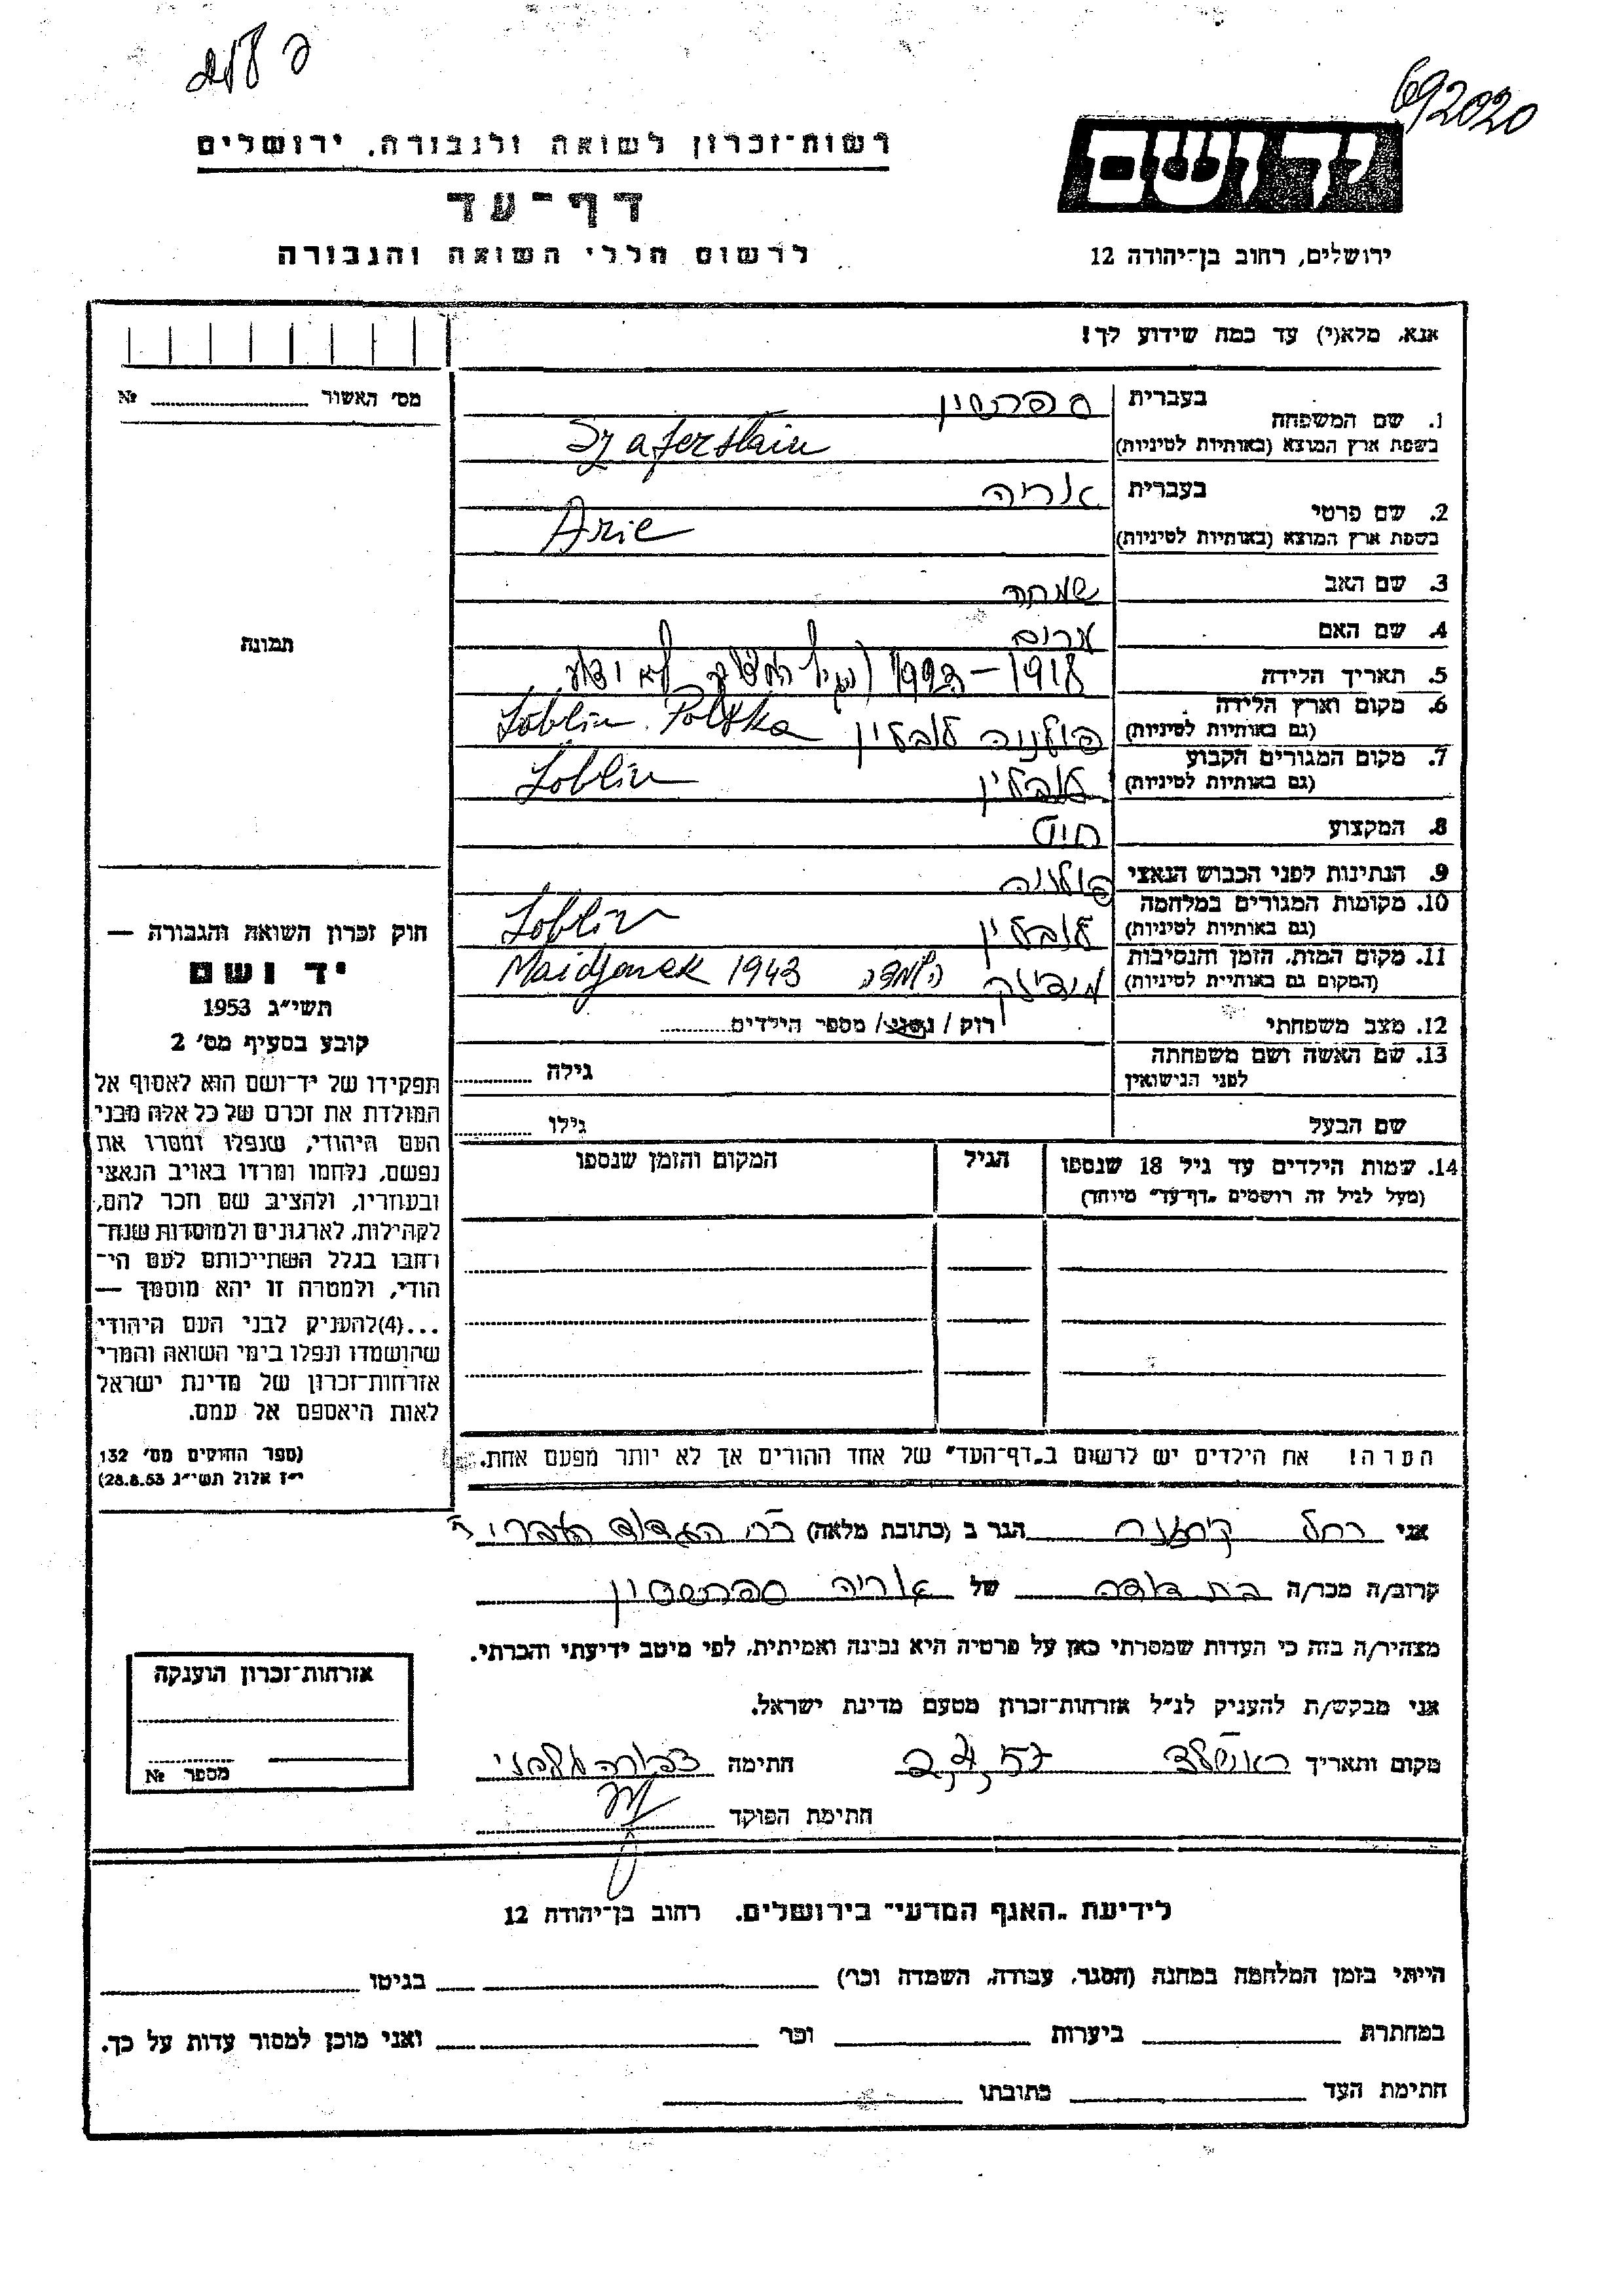 692020
רשות-זכרון לשואה ולגבורה, ירושלים
יד ושם
דף-עד
לרשום חללי השואה והגבורה
ירושלים, רחוב בן-יהודה 12
אנא, מלא(י) עד כמה שידוע לך!
מס' האשור № 
1. שם המשפחה
בעברית
בשפת ארץ המוצא (באותיות לטיניות)
Szaferstain
2. שם פרטי
בעברית אריה
בשפת ארץ המוצא (באותיות לטיניות)
Arie
3. שם האב שמחה
4. שם האם
תמונה
5. תאריך הלידה 1918 – לא ידוע
6. מקום וארץ הלידה
(גם באותיות לטיניות) פולניה לובלין Loblin. Polska
7. מקום המגורים הקבוע
(גם באותיות לטיניות) לובלין Loblin
8. המקצוע חייט
9. הנתינות לפני הכבוש הנאצי פולניה
10. מקומות המגורים במלחמה
(גם באותיות לטיניות) לובלין Loblin
11. מקום המות, הזמן והנסיבות
(המקום גם באותיות לטיניות) מידנק השמדה Maidjonek 1943
12. מצב משפחתי רוק / נשוי / מספר הילדים
13. שם האשה ושם משפחתה
לפני הנישואין גילה
שם הבעל גילו
14. שמות הילדים עד גיל 18 שנספו
(מעל לגיל זה רושמים "דף-עד" מיוחד)
הגיל
המקום והזמן שנספו
הערה! את הילדים יש לרשום ב"דף-העד" של אחד ההורים אך לא יותר מפעם אחת.
חוק זכרון השואה והגבורה —
יד ושם
תשי"ג 1953
קובע בסעיף מס' 2
תפקידו של יד-ושם הוא לאסוף אל
המולדת את זכרם של כל אלה מבני
העם היהודי, שנפלו ומסרו את
נפשם, נלחמו ומרדו באויב הנאצי
ובעוזריו, ולהציב שם וזכר להם,
לקהילות, לארגונים ולמוסדות שנח-
רחבו בגלל השתייכותם לעם הי-
הודי, ולמטרה זו יהא מוסמך —
...(4)להעניק לבני העם היהודי
שהושמדו ונפלו בימי השואה והמרי
אזרחות-זכרון של מדינת ישראל
לאות היאספם אל עמם.
(ספר החוקים מס' 132
י"ז אלול תשי"ג 28.8.53)
אני רחל הגר ב (כתובת מלאה)
קרוב/ה מכר/ה בת דודה של אריה
מצהיר/ה בזה כי העדות שמסרתי כאן על פרטיה היא נכונה ואמיתית, לפי מיטב ידיעתי והכרתי.
אני מבקש/ת להעניק לנ"ל אזרחות-זכרון מטעם מדינת ישראל.
מקום ותאריך 57 חתימה
חתימת הפוקד
אזרחות-זכרון הוענקה
מספר №
לידיעת "האגף המדעי" בירושלים, רחוב בן-יהודה 12
הייתי בזמן המלחמה במחנה (הסגר, עבודה, השמדה וכו') בגיטו
במחתרת ביערות וכו' ואני מוכן למסור עדות על כך.
חתימת העד כתובתו